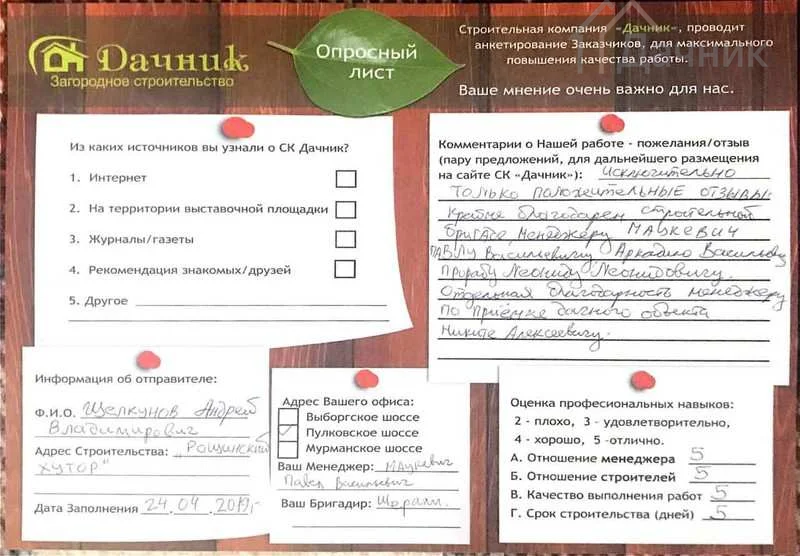 Дачник
Загородное строительство
Опросный
лист
Строительная компания «Дачник», проводит
анкетирование Заказчиков, для максимального
повышения качества работы.
Ваше мнение очень важно для нас.
ДАЧНИК
Из каких источников вы узнали о СК Дачник?
1. Интернет
2. На территории выставочной площадки
3. Журналы/газеты
4. Рекомендация знакомых/друзей
5. Другое
Комментарии о Нашей работе - пожелания/отзыв
(пару предложений, для дальнейшего размещения
на сайте СК «Дачник»): Исключительно
только положительные отзывы.
Крайне благодарен строительной
бригаде, менеджеру Мацкевич
Павлу Васильевичу, Аркадию Васильевичу
Прорабу Леониду Леонидовичу.
Отдельная благодарность менеджеру
по приёмке дачного объекта
Никите Алексеевичу.
Информация об отправителе:
Ф.И.О. Щелкунов Андрей
Владимирович
Адрес Строительства: „Рощинский
хутор"
Дата Заполнения 24.04.2019г
Адрес Вашего офиса:
Выборгское шоссе
Пулковское шоссе
Мурманское шоссе
Ваш Менеджер: Мацкевич
Павел Васильевич
Ваш Бригадир:
Оценка профессиональных навыков:
2 - плохо, 3 - удовлетворительно,
4 - хорошо, 5 -отлично.
А. Отношение менеджера 5
Б. Отношение строителей 5
В. Качество выполнения работ 5
Г. Срок строительства (дней) 5